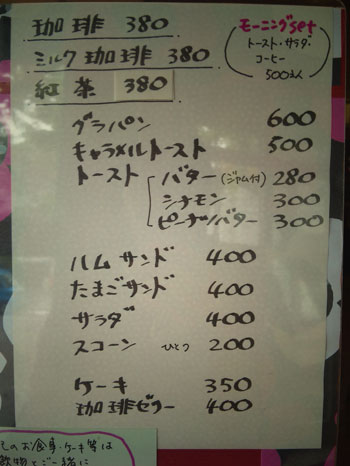 珈琲 380
ミルク珈琲 380
紅茶 380
モーニングset
トースト・サラダ・
コーヒー
500えん
グラパン 600
キャラメルトースト 500
トースト バター(ジャム付) 280
シナモン 300
ピーナツバター 300
ハムサンド 400
たまごサンド 400
サラダ 400
スコーン ひとつ 200
ケーキ 350
珈琲ゼリー 400
そのお食事・ケーキ等は
飲物とご一緒に